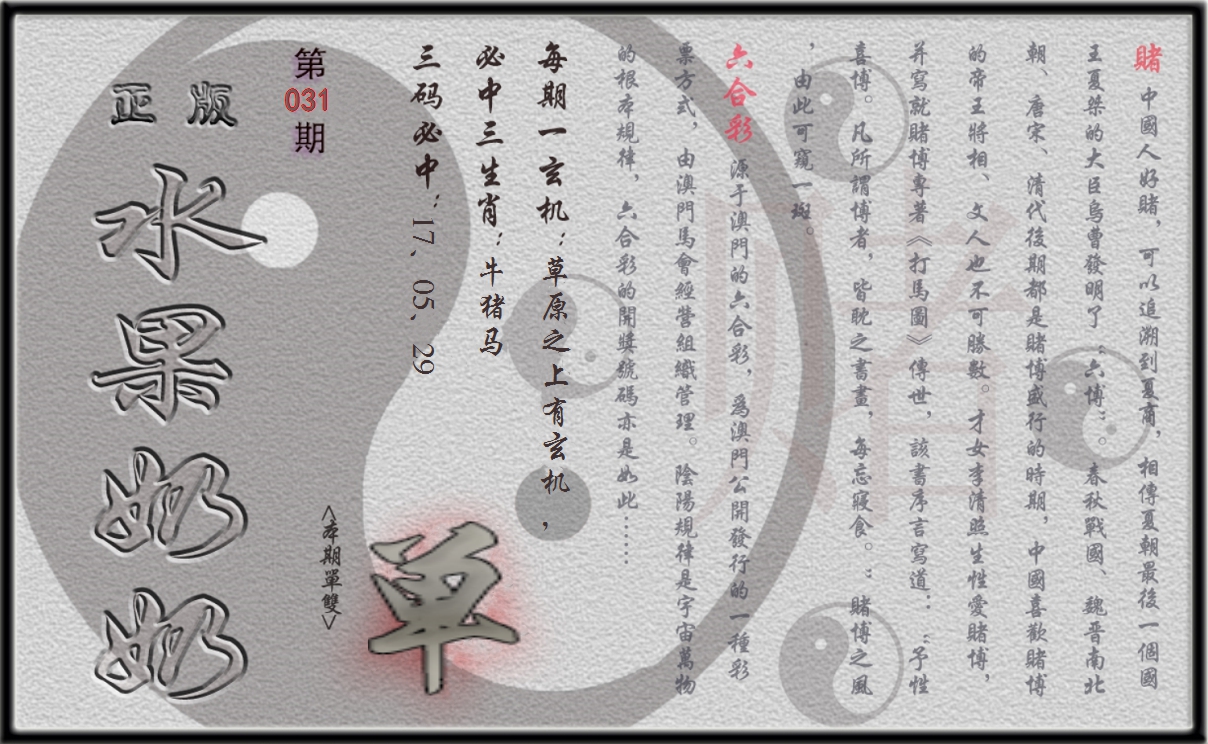 賭 中國人好賭，可以追溯到夏商，相傳夏朝最後一個國
王夏桀的大臣烏曹發明了“六博”。春秋戰國、魏晉南北
朝、唐宋、清代後期都是賭博盛行的時期，中國喜歡賭博
的帝王將相、文人也不可勝數。才女李清照生性愛賭博，
并寫就賭博專著《打馬圖》傳世，該書序言寫道：“予性
喜博。凡所謂博者，皆耽之書畫，每忘寢食。：賭博之風
，由此可窺一斑。
六合彩 源于澳門的六合彩，爲澳門公開發行的一種彩
票方式，由澳門馬會經營組織管理。陰陽規律是宇宙萬物
的根本規律，六合彩的開獎號碼亦是如此……
每期一玄机：草原之上有玄机，
必中三生肖：牛猪马
三码必中：17、05、29
單
<本期單雙>
第
031
期
正版
水果奶奶